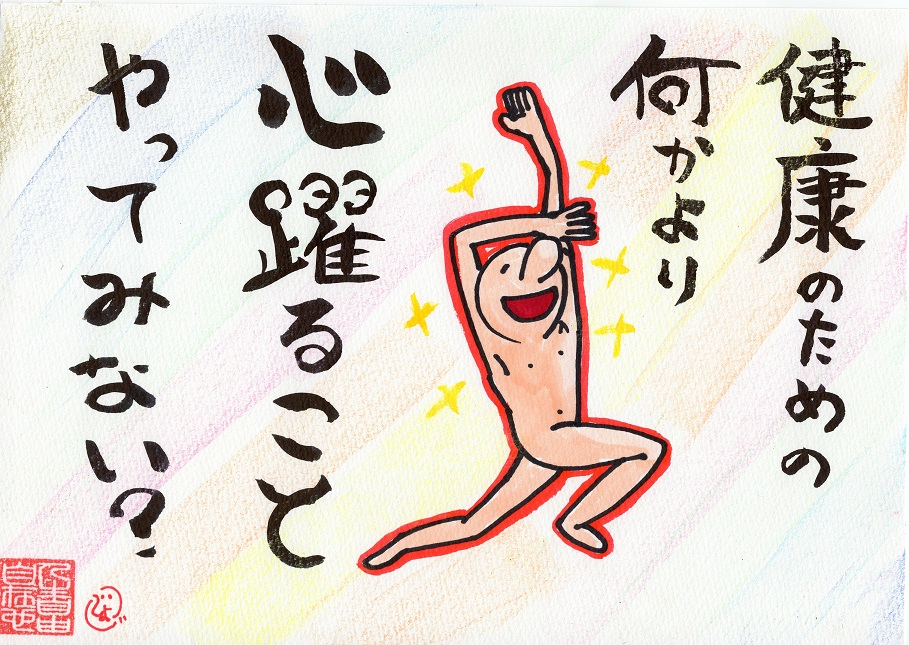 健康のための
何かより
心躍ること
やってみない?